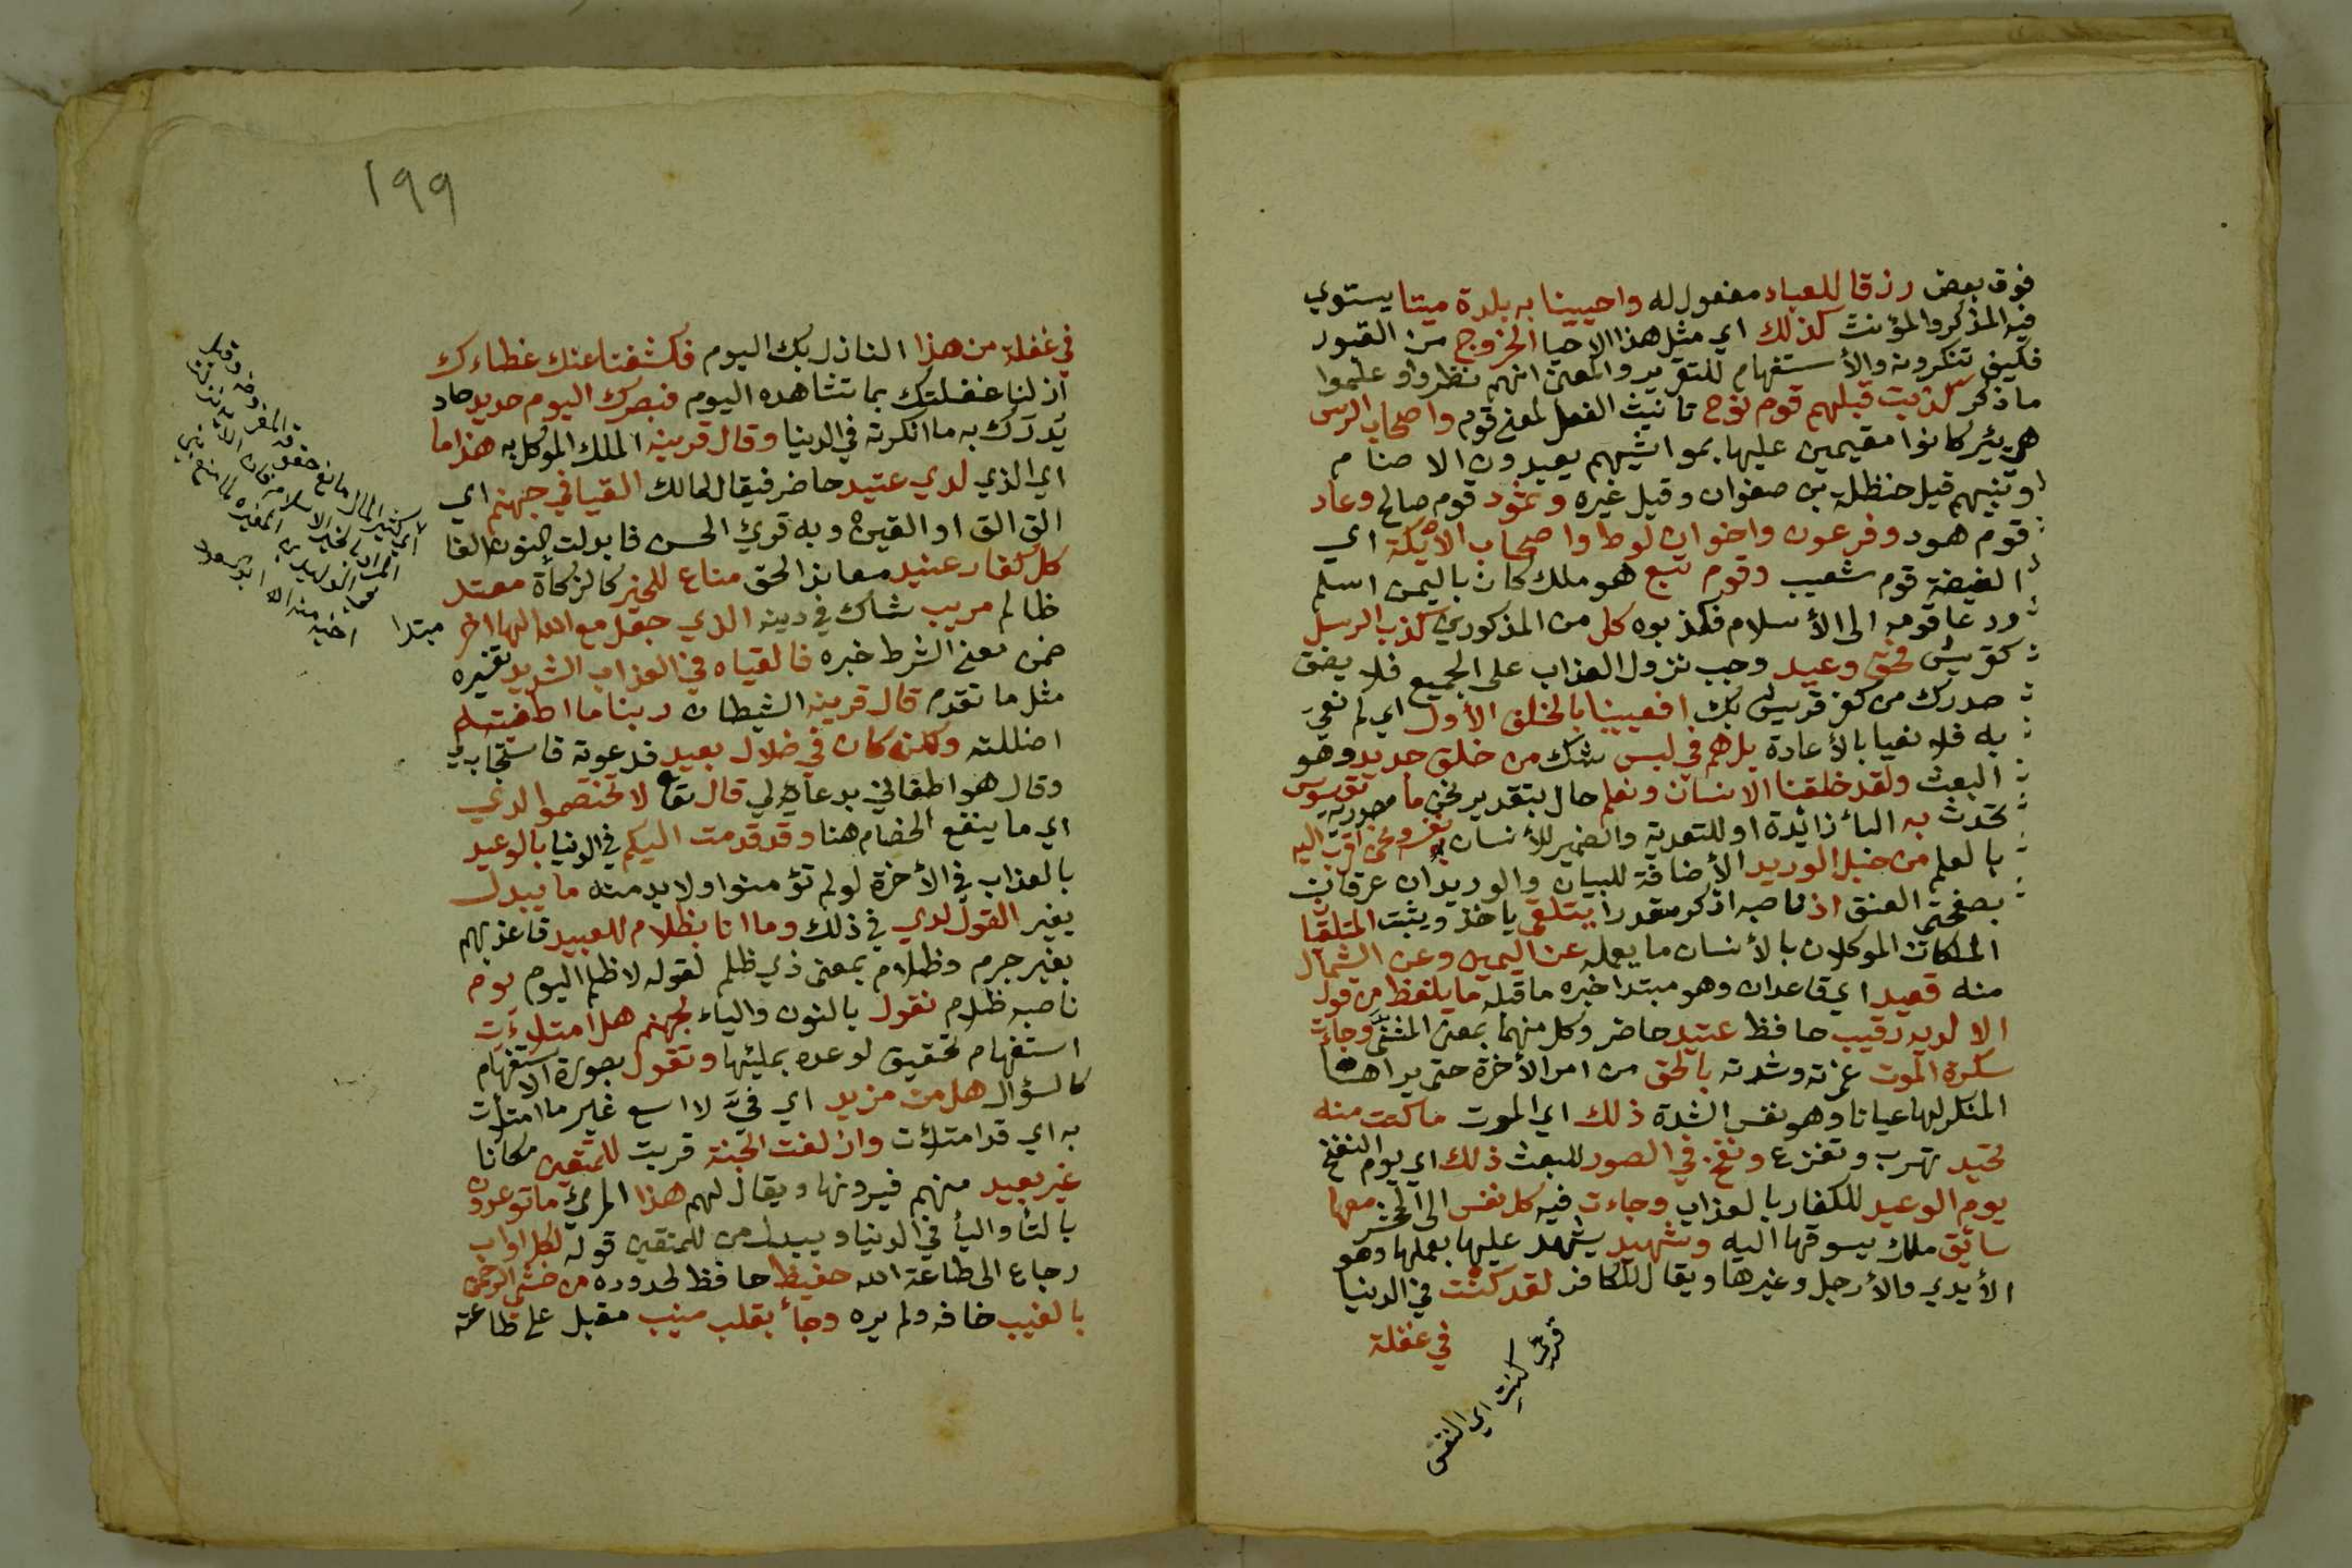 فوق بعض رزقا للعباد مفعول له واحيينا به بلدة ميتا يستوي
فيه المذكر والمؤنث كذلك اي مثل هذا الاحيا الخروج من القبور
فكيف تنكرونه والأستفهام للتقرير والمعنى انهم نظروا وعلموا
ما ذكر كذبت قبلهم قوم نوح تانيث الفعل لمعنى قوم واصحاب الرس
هي بئر كانوا مقيمين عليها بمواشيهم يعبدون الاصنام
ونبيهم قيل حنظلة بن صفوان وقيل غيره وثمود قوم صالح وعاد
قوم هود وفرعون واخوان لوط واصحاب الأيكة اي
الغيضة قوم شعيب وقوم تبع هو ملك كان باليمن اسلم
ودعا قومه الى الأسلام فكذبوه كل من المذكورين كذب الرسل
كقريش فحق وعيد وجب نزول العذاب على الجميع فلا يضق
صدرك من كفر قريش بك افعيينا بالخلق الأول اي لم نعي
به فلا نعيا بالأعادة بل هم في لبس شك من خلق جديد وهو
البعث ولقد خلقنا الانسان ونعلم حال بتقدير نحن ما مصدرية توسوس
تحدث به البأ زائدة او للتعدية والضمير للأنسان نفسه ونحن اقرب اليه
بالعلم من حبل الوريد الأضافة للبيان والوريدان عرقان
بصفحتي العنق اذ ناصبه اذكر مقدرا يتلقى ياخذ ويثبت المتلقيا
الملكان الموكلان بالأنسان ما يعمله عن اليمين وعن الشمال
منه قعيد اي قاعدان وهو مبتدا خبره ما قبله ما يلفظ من قول
الا لديه رقيب حافظ عتيد حاضر وكل منهما بمعنى المثنى وجاءت
سكرة الموت غمرته وشدته بالحق من امر الأخرة حتى يراها
المنكر لها عيانا وهو نفس الشدة ذلك اي الموت ما كنت منه
تحيد تهرب وتفزع ونفخ في الصور للبعث ذلك اي يوم النفخ
يوم الوعيد للكفار بالعذاب وجاءت فيه كل نفس الى المحشر معها
سائق ملك يسوقها اليه وشهيد يشهد عليها بعملها وهو
الأيدي والأرجل وغيرها ويقال للكافر لقد كنت في الدنيا
في غفلة
قرئ كنت اي النفس
١٩٩
في غفلة من هذا النازل بك اليوم فكشفنا عنك غطاءك
ازلنا غفلتك بما تشاهده اليوم فبصرك اليوم حديد حاد
تدرك به ما انكرته في الدنيا وقال قرينه الملك الموكل به هذا ما
اي الذي لدي عتيد حاضر فيقال لمالك القيا في جهنم اي
الق الق او القين وبه قرئ الحسن فابدلت النون الفا
كل كفار عنيد معاند الحق مناع للخير كالزكاة معتد
ظالم مريب شاك في دينه الذي جعل مع الله الها اخر مبتدا
ضمن معنى الشرط خبره فالقياه في العذاب الشديد تفسيره
مثل ما تقدم قال قرينه الشيطان ربنا ما اطغيته
اضللته ولكن كان في ضلال بعيد فدعوته فاستجاب لي
وقال هو اطغاني بدعائه لي قال تعا لا تختصموا لدي
اي ما ينفع الخصام هنا وقد قدمت اليكم في الدنيا بالوعيد
بالعذاب في الأخرة لو لم تؤمنوا ولا بد منه ما يبدل
يغير القول لدي في ذلك وما انا بظلام للعبيد فاعذبهم
بغير جرم وظلام بمعنى ذي ظلم لقوله لا ظلم اليوم يوم
ناصبه ظلام نقول بالنون والياء لجهنم هل امتلأت
استفهام تحقيق لوعده بملئها وتقول بصورة الاستفهام
كالسؤال هل من مزيد اي فيّ لا اسع غير ما امتلأت
به اي قد امتلأت وازلفت الجنة قربت للمتقين مكانا
غير بعيد منهم فيرونها ويقال لهم هذا المرئ ما توعدون
بالتأ واليأ في الدنيا ويبدل من للمتقين قوله لكل اواب
رجاع الى طاعة الله حفيظ حافظ لحدوده من خشي الرحمن
بالغيب خافه ولم يره وجأ بقلب منيب مقبل على طاعته
اي كثير المال مانع حقوقه المفروضة وقيل
المراد بالخير الاسلام فان الاية نزلت